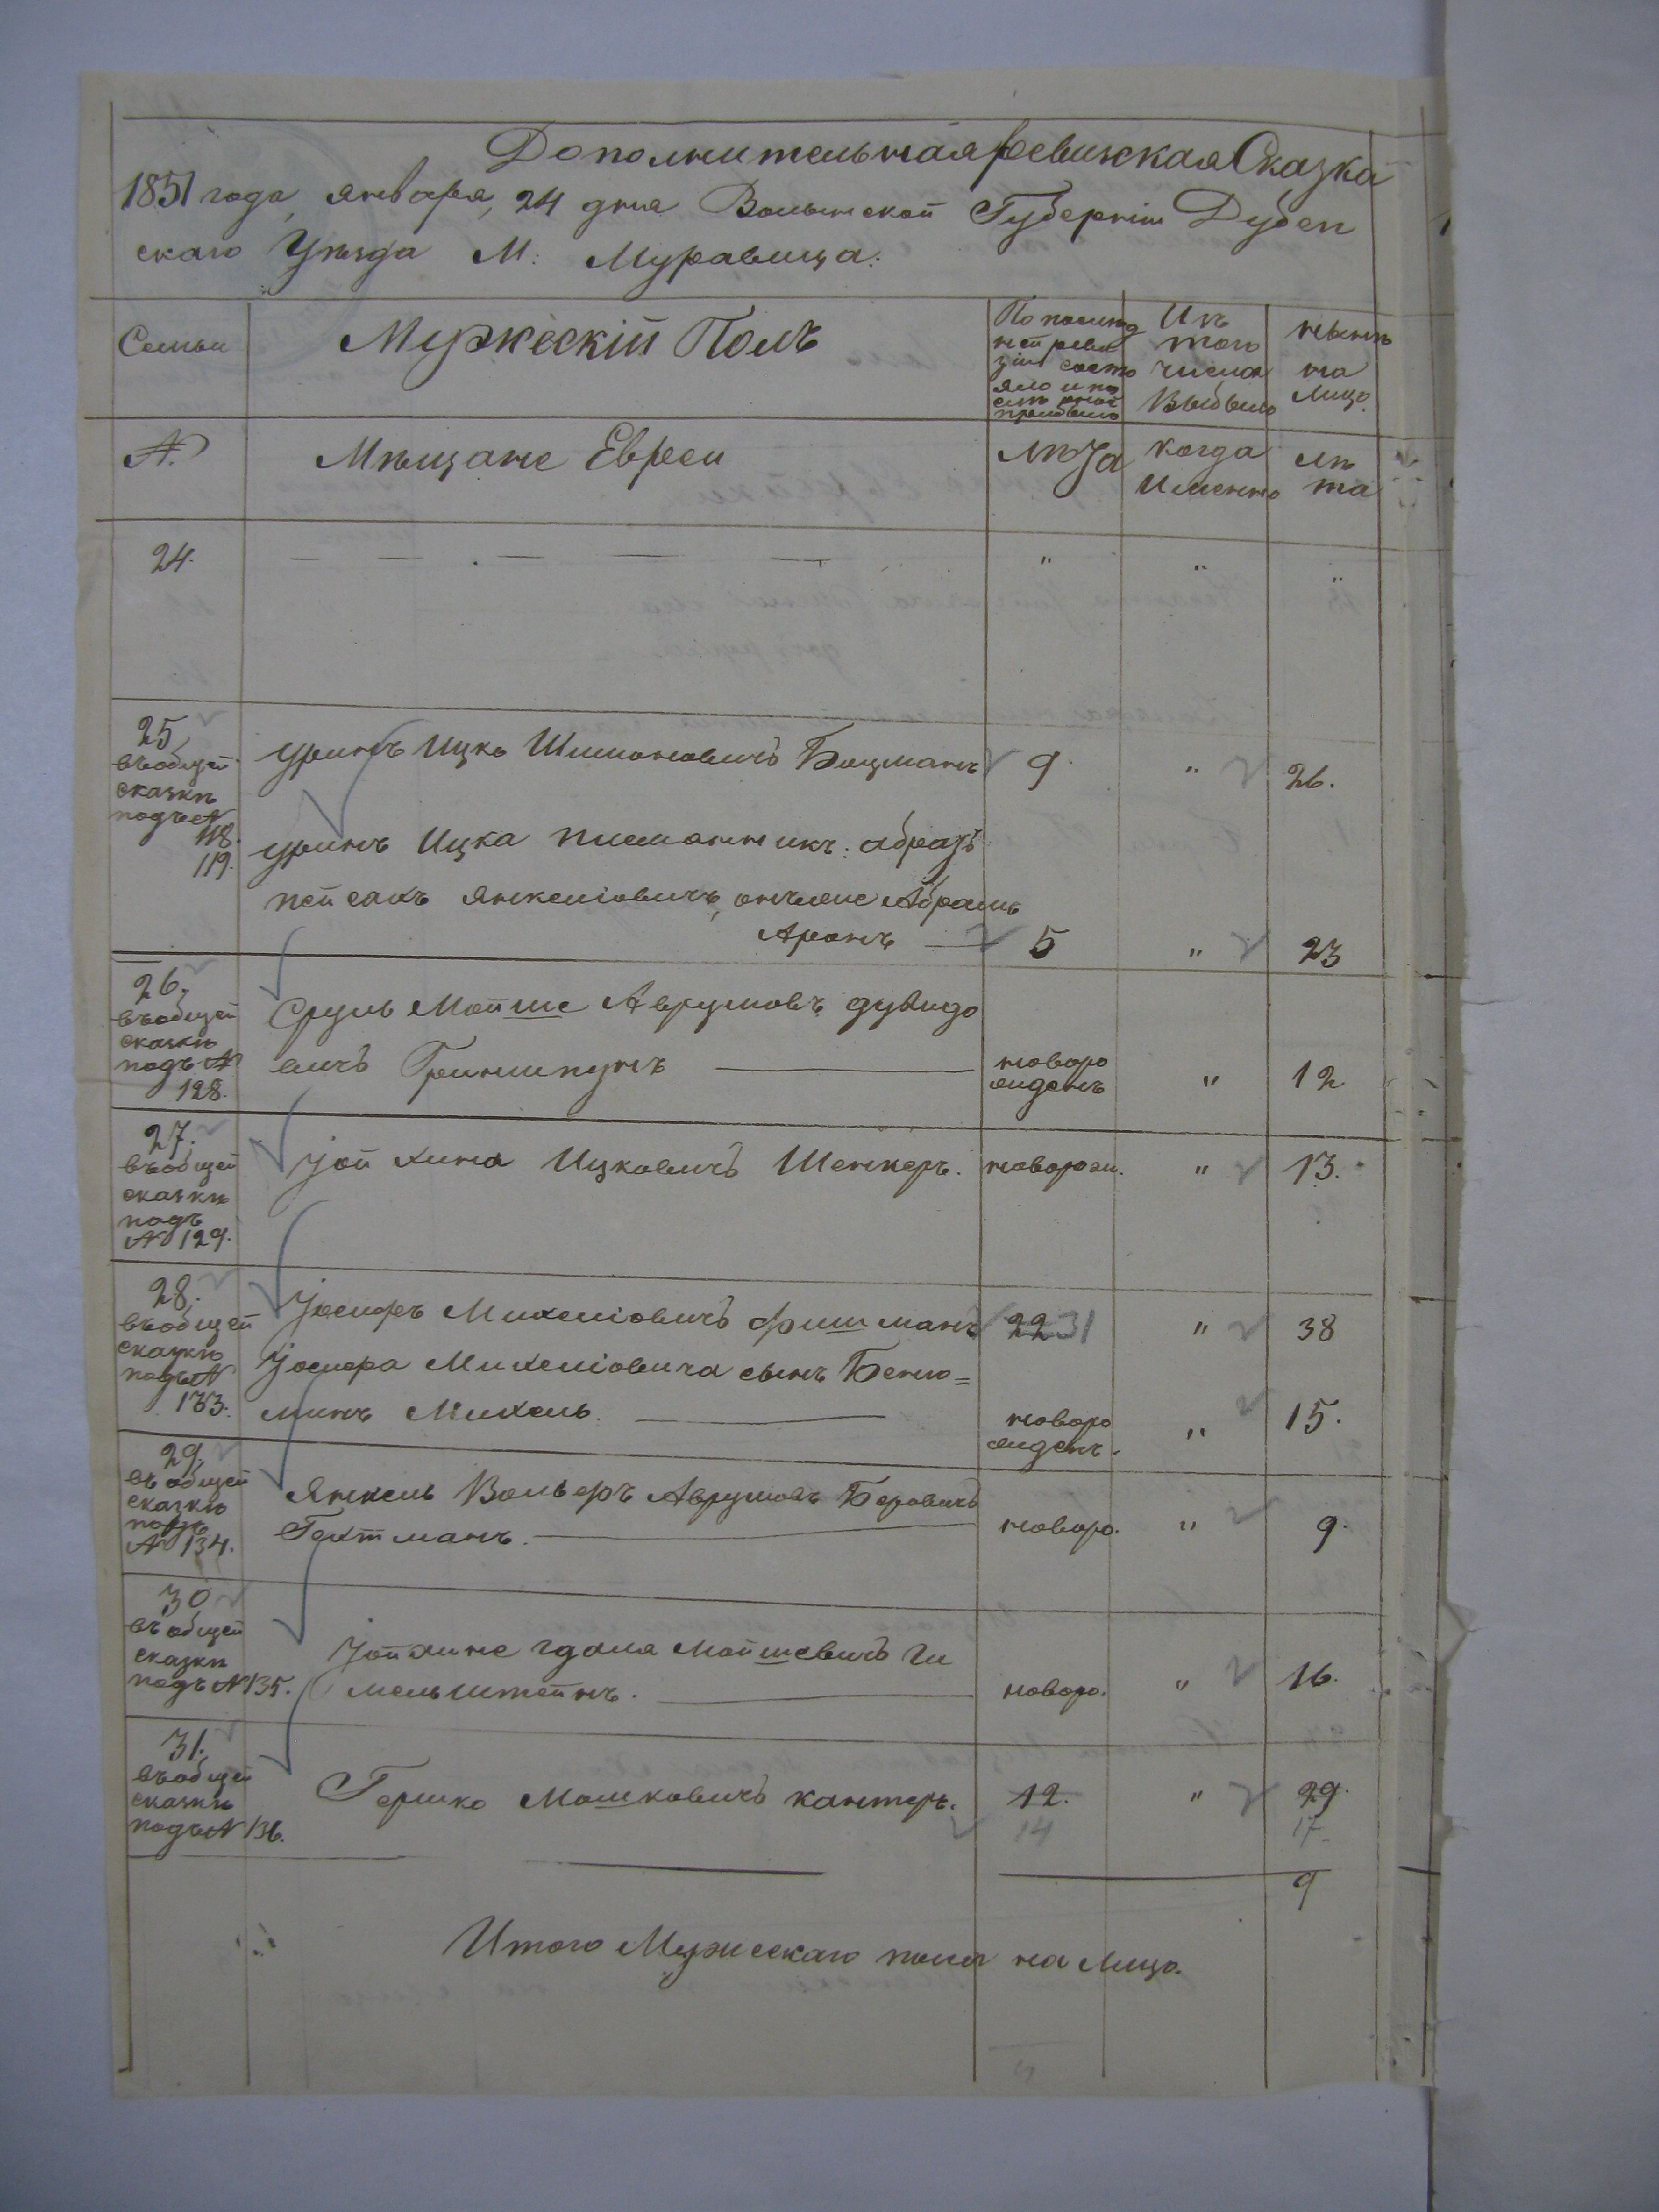 Дополнительная ревизская Сказка
1851 года, января, 24 дня Волынской Губерніи Дубен
скаго Уѣзда М: Муравица:
Семьи
Мужескій Полъ
По послѣд
ней реви
зіи состо
яло и по
слѣ оной
прибыло
Изъ
того
числа
Выбыло
нынѣ
на
лицо.
№.
Мѣщане Евреи
лѣта
когда
Именно
лѣ
та
24. " " "
25
въ общей
сказкѣ
подъ №
118.
119.
Уринъ Ицко Шимоновичъ Боцманъ 9 " 26.
Уринъ Ицка
Пейсахъ Янкеліовичъ, онъ же Абрамъ
Аронъ 5 " 23
26.
въ общей
сказкѣ
подъ №
128.
Сруль Мойше Аврумовъ Дувидо
вичъ новоро
жденъ " 12
27.
въ общей
сказкѣ
подъ
№ 129.
Іойхина Ицковичъ Шенкеръ. новорож. " 13.
28.
въ общей
сказкѣ
подъ №
133.
Іосифъ Михеліовичъ Фишманъ 22 31 " 38
Іосифа Михеліовича сынъ Беню=
минъ Михель новоро
жденъ. " 15.
29.
въ общей
сказкѣ
подъ
№ 134.
Янкель Вольфъ Аврумовъ Беровичъ
Гехтманъ. новоро. " 9.
30
въ общей
сказкѣ
подъ № 135.
Іойхине Гдаля Мойшевичъ Ги
мельштейнъ. новоро. " 16.
31.
въ общей
сказкѣ
подъ № 136.
Гершко Мошковичъ Кантеръ. 12. " 29.
14 17
9
Итого Мужескаго пола на лицо.